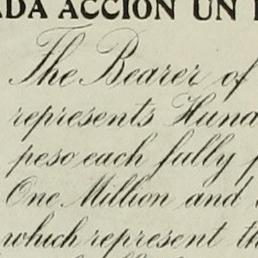 ADA ACCIÓN UN
The Bearer of
represents Hund
peso each fully p
One Million and
which represent th